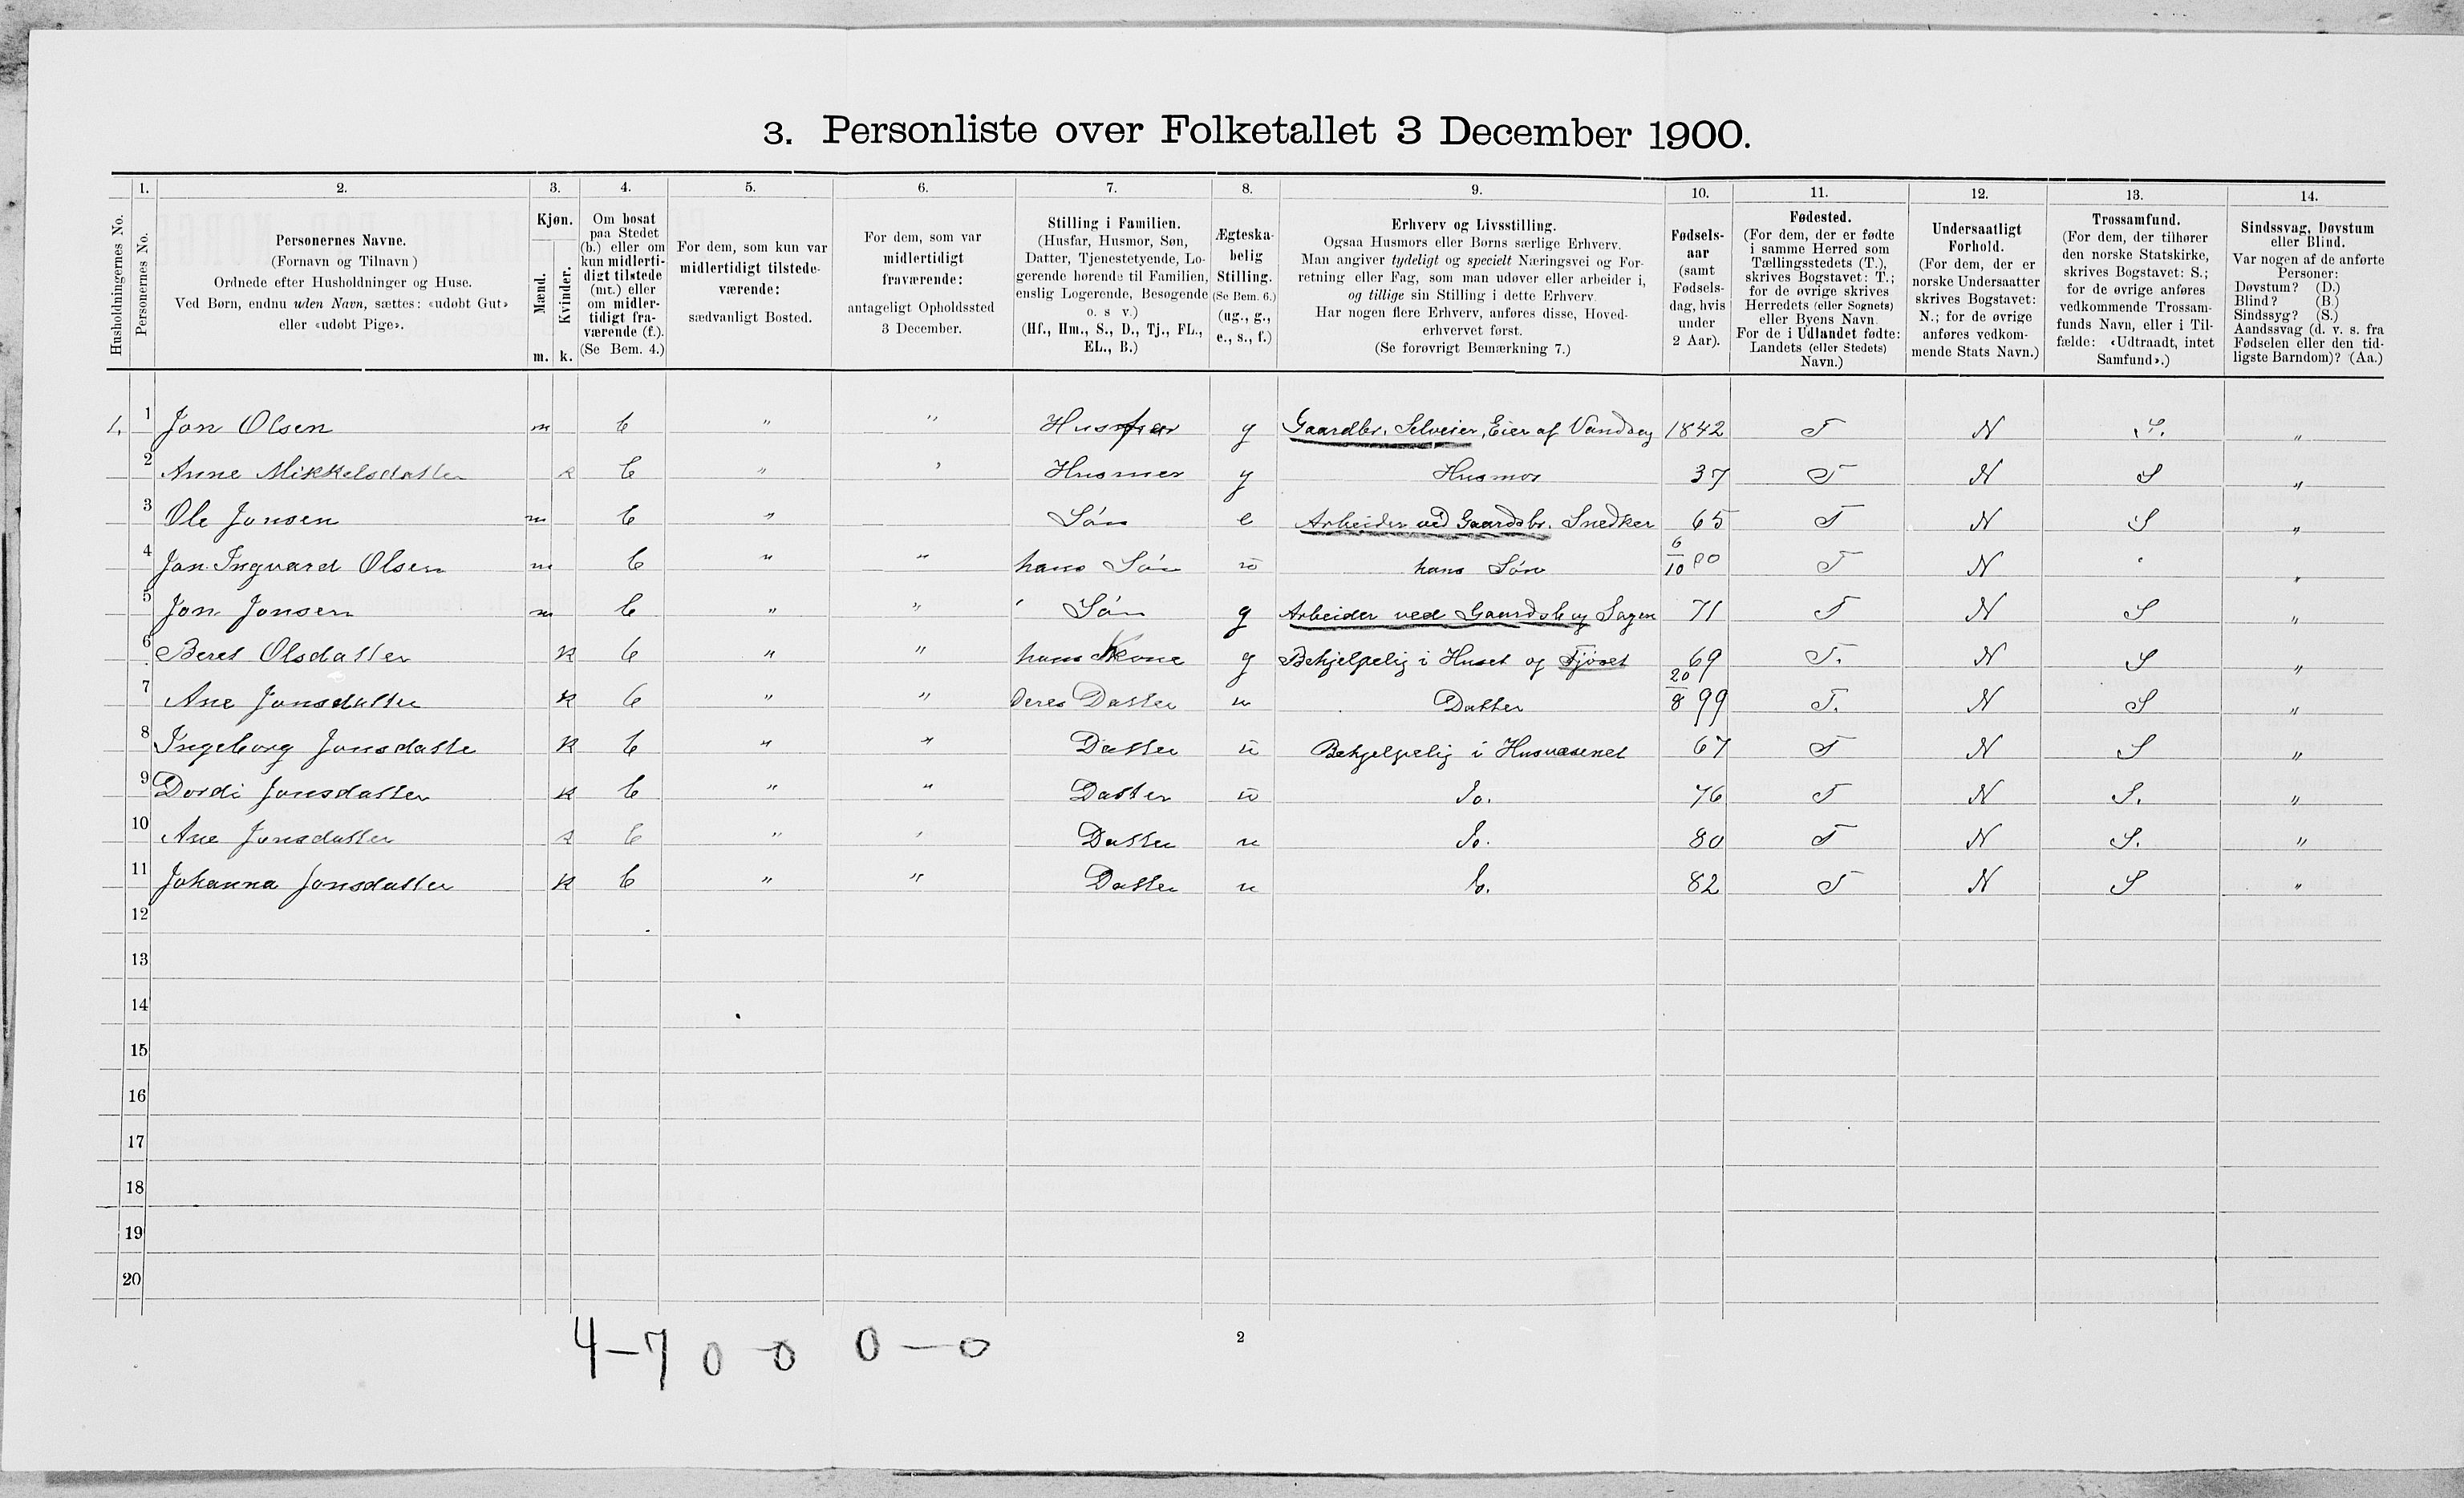 3. Personliste over Folketallet 3 December 1900.
Husholdningernes No.
1. Personernes No.
2. Personernes Navne.
(Fornavn og Tilnavn)
Ordnede efter Husholdninger og Huse.
Ved Børn, endnu uden Navn, sættes: «udøbt Gut»
eller «udøbt Pige».
3. Kjøn.
Mænd. m.
Kvinder. k.
4. Om bosat
paa Stedet
(b.) eller om
kun midlerti-
digt tilstede
(mt.) eller
om midler-
tidigt fra-
værende (f.).
(Se Bem. 4.)
5. For dem, som kun var
midlertidigt tilstede-
værende:
sædvanligt Bosted.
6. For dem, som var
midlertidigt
fraværende:
antageligt Opholdssted
3 December.
7. Stilling i Familien.
(Husfar, Husmor, Søn,
Datter, Tjenestetyende, Lo-
gerende hørende til Familien,
enslig Logerende, Besøgende
o. s v.)
(Hf., Hm., S., D., Tj., FL.,
EL., B.)
8. Ægteska-
belig
Stilling.
(Se Bem. 6.)
(ug., g.,
e., s., f.)
9. Erhverv og Livsstilling.
Ogsaa Husmors eller Børns særlige Erhverv.
Man angiver tydeligt og specielt Næringsvei og For-
retning eller Fag, som man udøver eller arbeider i,
og tillige sin Stilling i dette Erhverv.
Har nogen flere Erhverv, anføres disse, Hoved-
erhvervet først.
(Se forøvrigt Bemærkning 7.)
10. Fødsels-
aar
(samt
Fødsels-
dag, hvis
under
2 Aar).
11. Fødested.
(For dem, der er fødte
i samme Herred som
Tællingsstedets (T.),
skrives Bogstavet: T.;
for de øvrige skrives
Herredets (eller Sognets)
eller Byens Navn.
For de i Udlandet fødte:
Landets (eller Stedets)
Navn.)
12. Undersaatligt
Forhold.
(For dem, der er
norske Undersaatter
skrives Bogstavet:
N.; for de øvrige
anføres vedkom-
mende Stats Navn.)
13. Trossamfund.
(For dem, der tilhører
den norske Statskirke,
skrives Bogstavet: S.;
for de øvrige anføres
vedkommende Trossam-
funds Navn, eller i Til-
fælde: «Udtraadt, intet
Samfund».)
14. Sindssvag, Døvstum
eller Blind.
Var nogen af de anførte
Personer:
Døvstum? (D.)
Blind? (B.)
Sindssyg? (S.)
Aandssvag (d. v. s. fra
Fødselen eller den tid-
ligste Barndom)? (Aa.)
1. 1 Jon Olsen m b " " Husfar g Gaardbr. Selveier, Eier af Vandsag 1842 T N S. "
2 Anne Mikkelsdatter k b " " Husmor g Husmor 37 T N S "
3 Ole Jonsen m b " Søn e Arbeider ved Gaardsbr. Snedker 65 T N S "
4 Jon Ingvard Olsen m b " " hans Søn u hans Søn 6/10 00 T N "
5 Jon Jonsen m b " " Søn g Arbeider ved Gaardsb og Sagen 71 T N S "
6 Beret Olsdatter k b " " hans Kone g Behjelpelig i Huset og Fjöset 69 T. N S "
7 Ane Jonsdatter k b " " deres Datter u Datter 20/8 99 T. N S "
8 Ingeborg Jonsdatte k b " " Datter u Behjelpelig i Husvæsenet 67 T N S "
9 Dordi Jonsdatter k b " " Datter u Do. 76 T N S. "
10 Ane Jonsdatter k b " " Datter u Do. 80 T N S. "
11 Johanna Jonsdatter k b " " Datter u Do. 82 T N S "
12
13
14
15
16
17
18
19
20
4-7 0 0 0-0
2